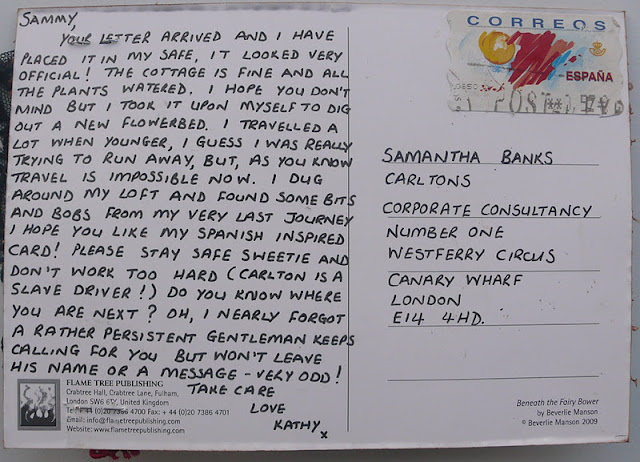 SAMMY,
YOUR LETTER ARRIVED AND I HAVE
PLACED IT IN MY SAFE, IT LOOKED VERY
OFFICIAL! THE COTTAGE IS FINE AND ALL
THE PLANTS WATERED. I HOPE YOU DON'T
MIND BUT I TOOK IT UPON MYSELF TO DIG
OUT A NEW FLOWERBED. I TRAVELLED A
LOT WHEN YOUNGER, I GUESS I WAS REALLY
TRYING TO RUN AWAY, BUT, AS YOU KNOW
TRAVEL IS IMPOSSIBLE NOW. I DUG
AROUND MY LOFT AND FOUND SOME BITS
AND BOBS FROM MY VERY LAST JOURNEY
I HOPE YOU LIKE MY SPANISH INSPIRED
CARD! PLEASE STAY SAFE SWEETIE AND
DON'T WORK TOO HARD (CARLTON IS A
SLAVE DRIVER!) DO YOU KNOW WHERE
YOU ARE NEXT? OH, I NEARLY FORGOT
A RATHER PERSISTENT GENTLEMAN KEEPS
CALLING FOR YOU BUT WON'T LEAVE
HIS NAME OR A MESSAGE - VERY ODD!
TAKE CARE
LOVE
KATHY x
FLAME TREE PUBLISHING
Crabtree Hall, Crabtree Lane, Fulham,
London SW6 6TY, United Kingdom
Tel: + 44 (0)20 7386 4700 Fax: + 44 (0)20 7386 4701
Email: info@flametreepublishing.com
Website: www.flametreepublishing.com
CORREOS
ESPAÑA
SAMANTHA BANKS
CARLTONS
CORPORATE CONSULTANCY
NUMBER ONE
WESTFERRY CIRCUS
CANARY WHARF
LONDON
E14 4HD.
Beneath the Fairy Bower
by Beverlie Manson
© Beverlie Manson 2009